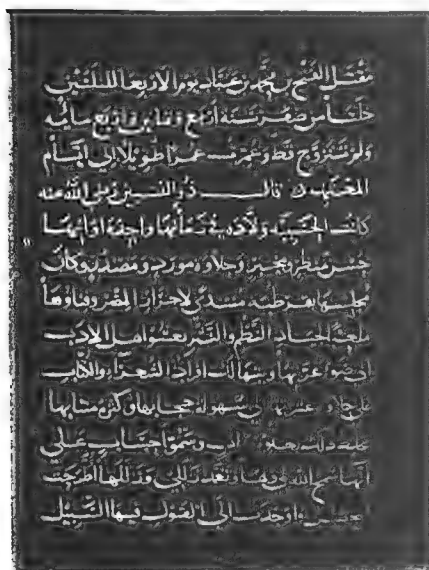 مقتل الفتح بن محمد بن عباد يوم الاربعا لليلتين
خلتا من صفر سنة اربع وثمانين واربع مائه
ولم تتزوج قط وعمرت عمرا طويلا الى ايام
المعتمد قال ذو النسبين رضي الله عنه
كانت الحسيبة ولاده في زمانها واحدة اوانها
حسن منظر ومخبر وحلاوة مورد ومصدر وكان
مجلسها بقرطبة منتدى لاحرار المصر وفناوها
ملعبا لجياد النظم والنثر يعشو اهل الادب
الى ضوء غرتها ويتهالك افراد الشعراء والكتاب
على حلاوة عشرتها الى سهولة حجابها وكثرة منتابها
تخلط ذلك
انها سمح الله لها وتغمد زللها اطرحت
اوجدت الى القول فيها السبيل